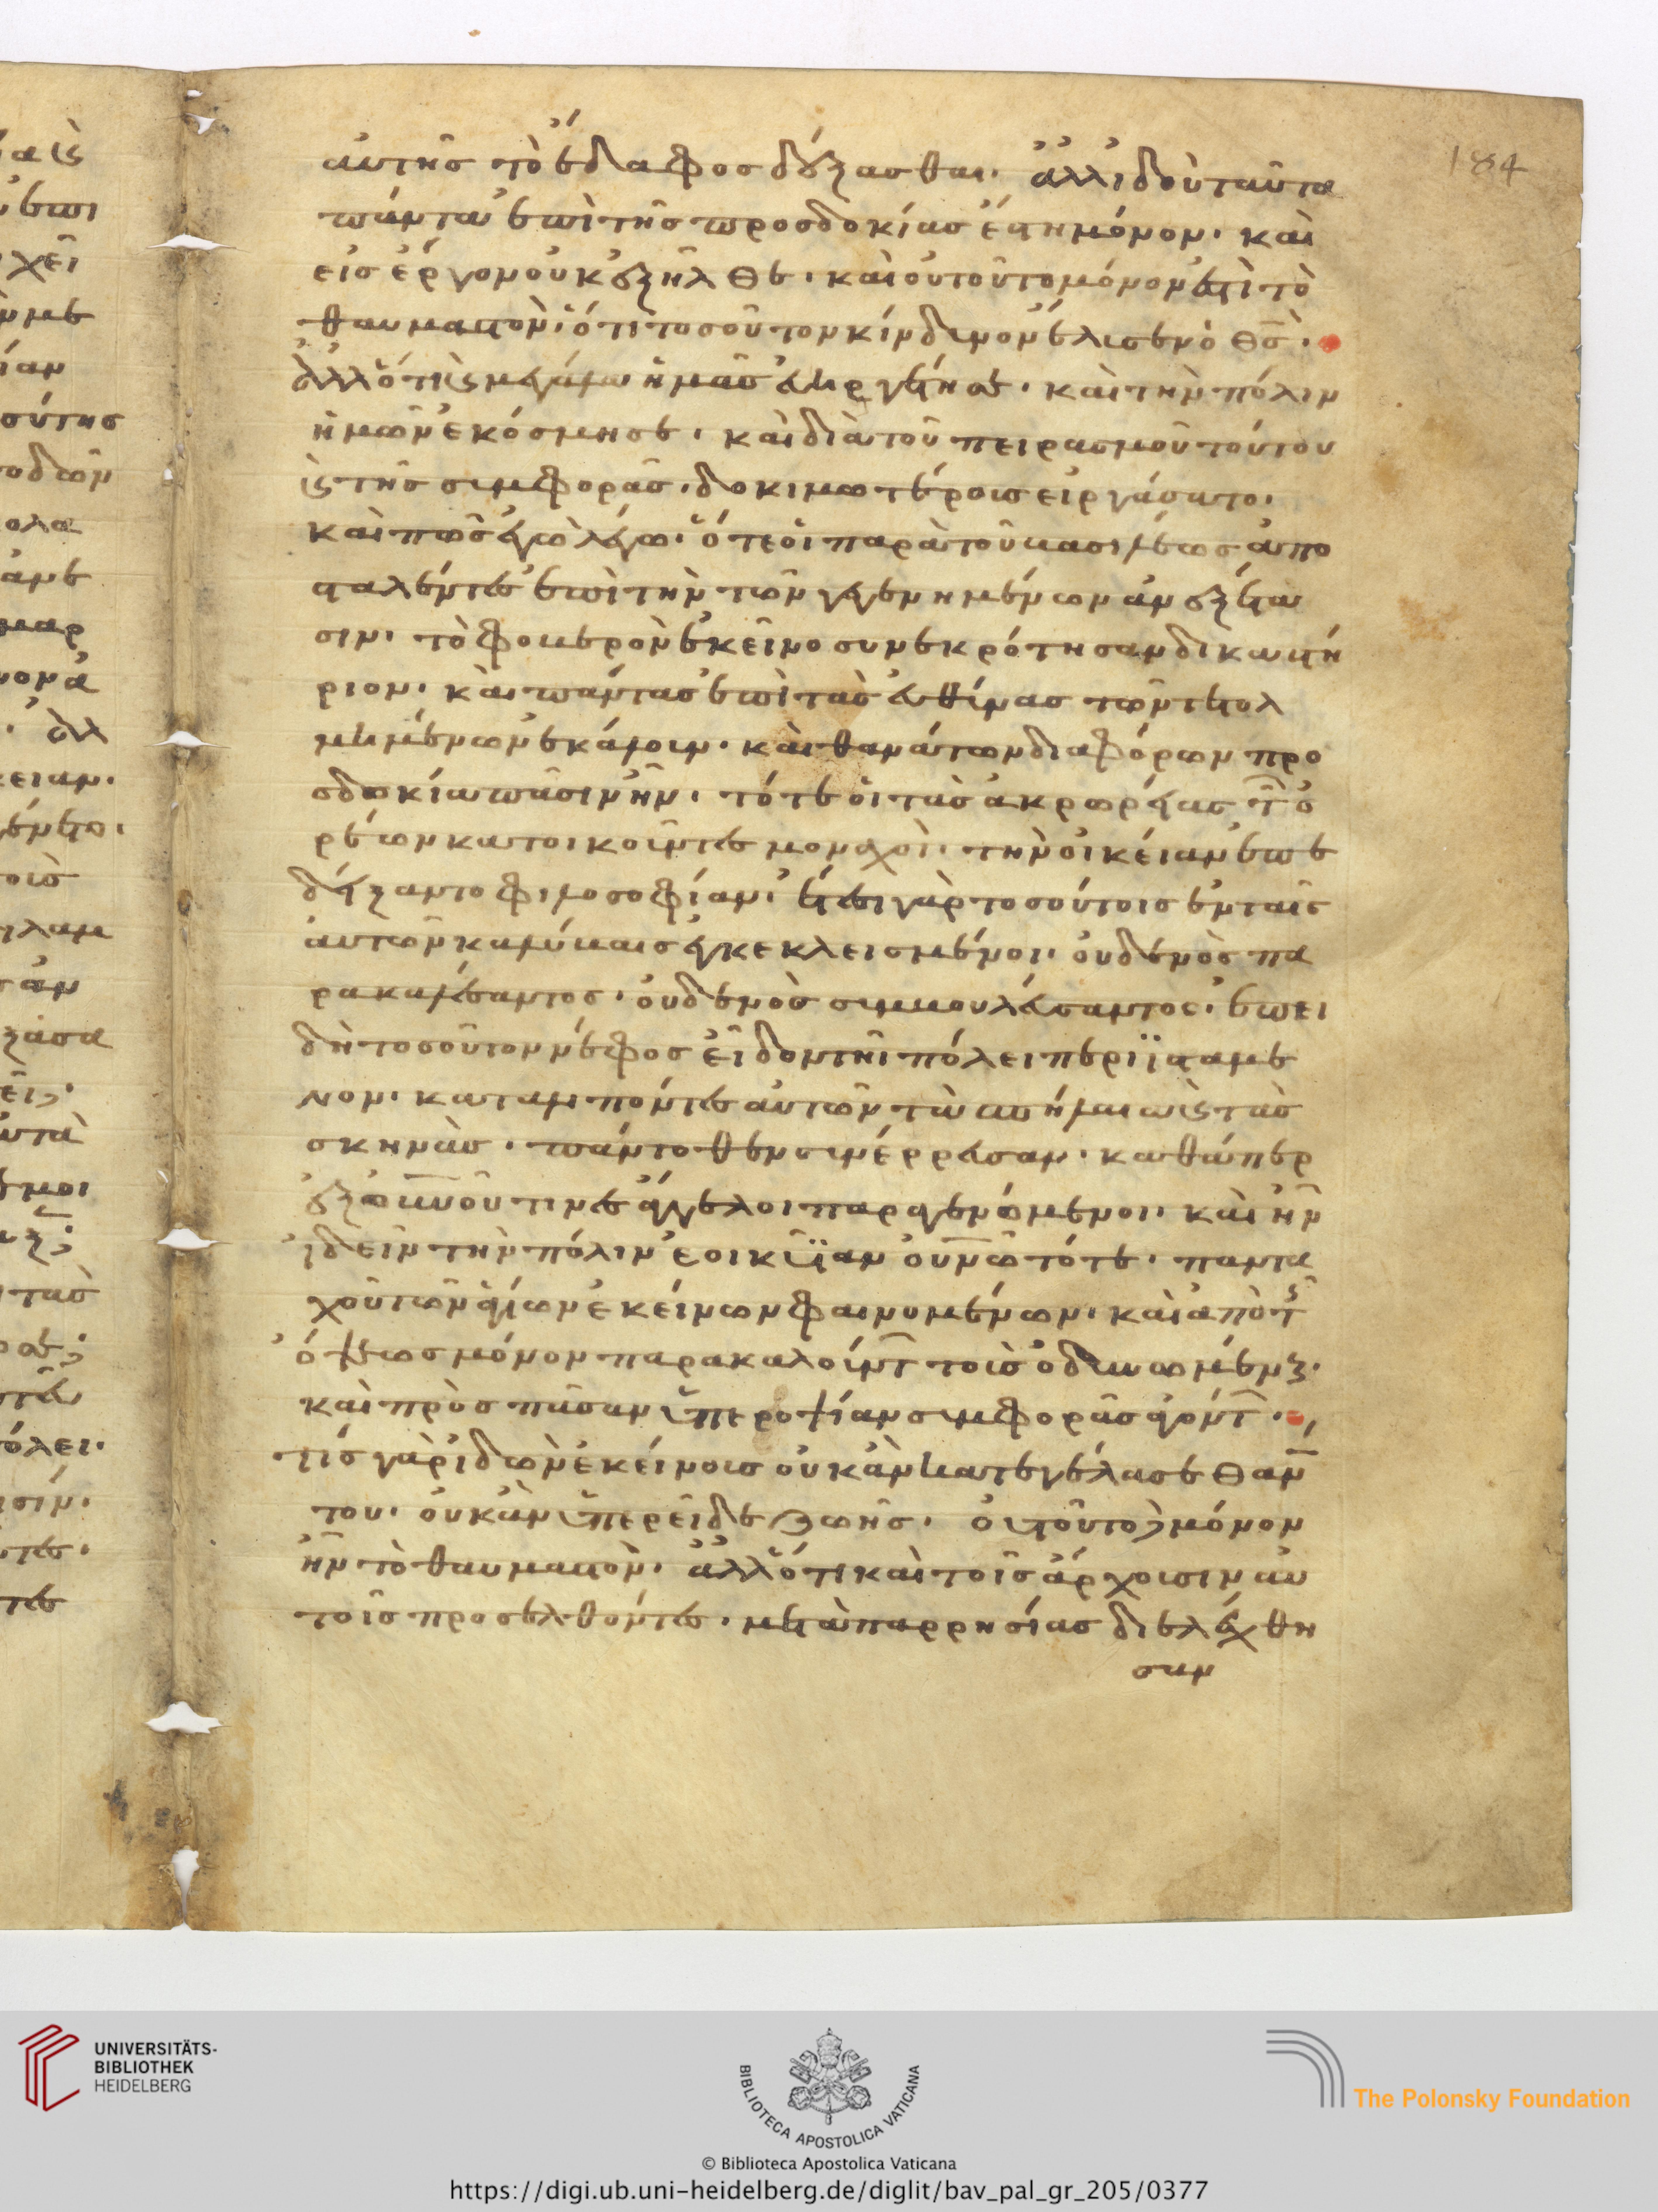 αὐτῆς τὸ ἔδαφος δέξασθαι. ἀλλ ἰδοὺ ταῦτα
πάντα ἐπὶ τῆς προσδοκίας ἔστη μόνον. καὶ
εἰς ἔργον οὐκ ἐξῆλθε. καὶ οὐ τοῦτο μόνον ἐστὶ τὸ
θαυμαστὸν. ὅτι τοσοῦτον κίνδυνον ἔλυσεν ὁ θς.
ἀλλ ὅτι καὶ μεγάλα ἡμᾶς εὐηργέτησε. καὶ τὴν πόλιν
ἡμῶν ἐκόσμησε. καὶ διὰ τοῦ πειρασμοῦ τούτου
καὶ τῆς συμφορᾶς. δοκιμωτέρους εἰργάσατο.
καὶ πῶς ἐγὼ λέγω. ὅτε οἱ παρὰ τοῦ βασιλέως ἀπο
σταλέντες ἐπὶ τὴν τῶν γεγενημένων ἀνεξέτα
σιν. τὸ φοβερὸν ἐκεῖνο συνεκρότησαν δικαστή
ριον. καὶ πάντας ἐπὶ τὰς εὐθύνας τῶν τετολ
μημένων ἐκάλουν. καὶ θανάτων διαφόρων προ
σδοκία πᾶσιν ἦν. τότε οἱ τὰς ἀκρωρείας τῶν ὀ
ρέων κατοικοῦντες μοναχοὶ. τὴν οἰκείαν ἐπε
δείξαντο φιλοσοφίαν. ἔτεσι γὰρ τοσούτοις ἐν ταῖς
αὐτῶν καλύβαις ἐγκεκλεισμένοι. οὐδενὸς πα
ρακαλέσαντος. οὐδενὸς συμβουλεύσαντος. ἐπει
δὴ τοσοῦτον νέφος εἶδον τῆ πόλει περιϊστάμε
νον. καταλιπόντες αὐτῶν τὰ σπήλαια καὶ τὰς
σκηνὰς. πάντοθεν συνέρρευσαν. καθάπερ
ἐξ οὐνοῦ τινὲς ἄγγελοι παραγενόμενοι. καὶ ἦν
ἰδεῖν τὴν πόλιν ἐοικυῖαν οὐνῶ τότε. παντα
χοῦ τῶν ἁγίων ἐκείνων φαινομένων. καὶ ἀπὸ τῆς
ὄψεως μόνον παρακαλούντ τοὺς ὀδυνωμένους.
καὶ πρὸς πᾶσαν ὑπεροψίαν συμφορᾶς ἀγόντων.
τίς γὰρ ἰδὼν ἐκείνους οὐκ ἂν κατεγέλασε θανά
του. οὐκ ἂν ὑπερεῖδε ζωῆς. οὐ τοῦτο δὲ μόνον
ἦν τὸ θαυμαστὸν. ἀλλ ὅτι καὶ τοῖς ἄρχουσιν αὐ
τοῖς προσελθόντες. μετὰ παρρησίας διελέχθη
σαν
184
UNIVERSITÄTS-
BIBLIOTHEK
HEIDELBERG
BIBLIOTECA APOSTOLICA VATICANA
The Polonsky Foundation
© Biblioteca Apostolica Vaticana
https://digi.ub.uni-heidelberg.de/diglit/bav_pal_gr_205/0377